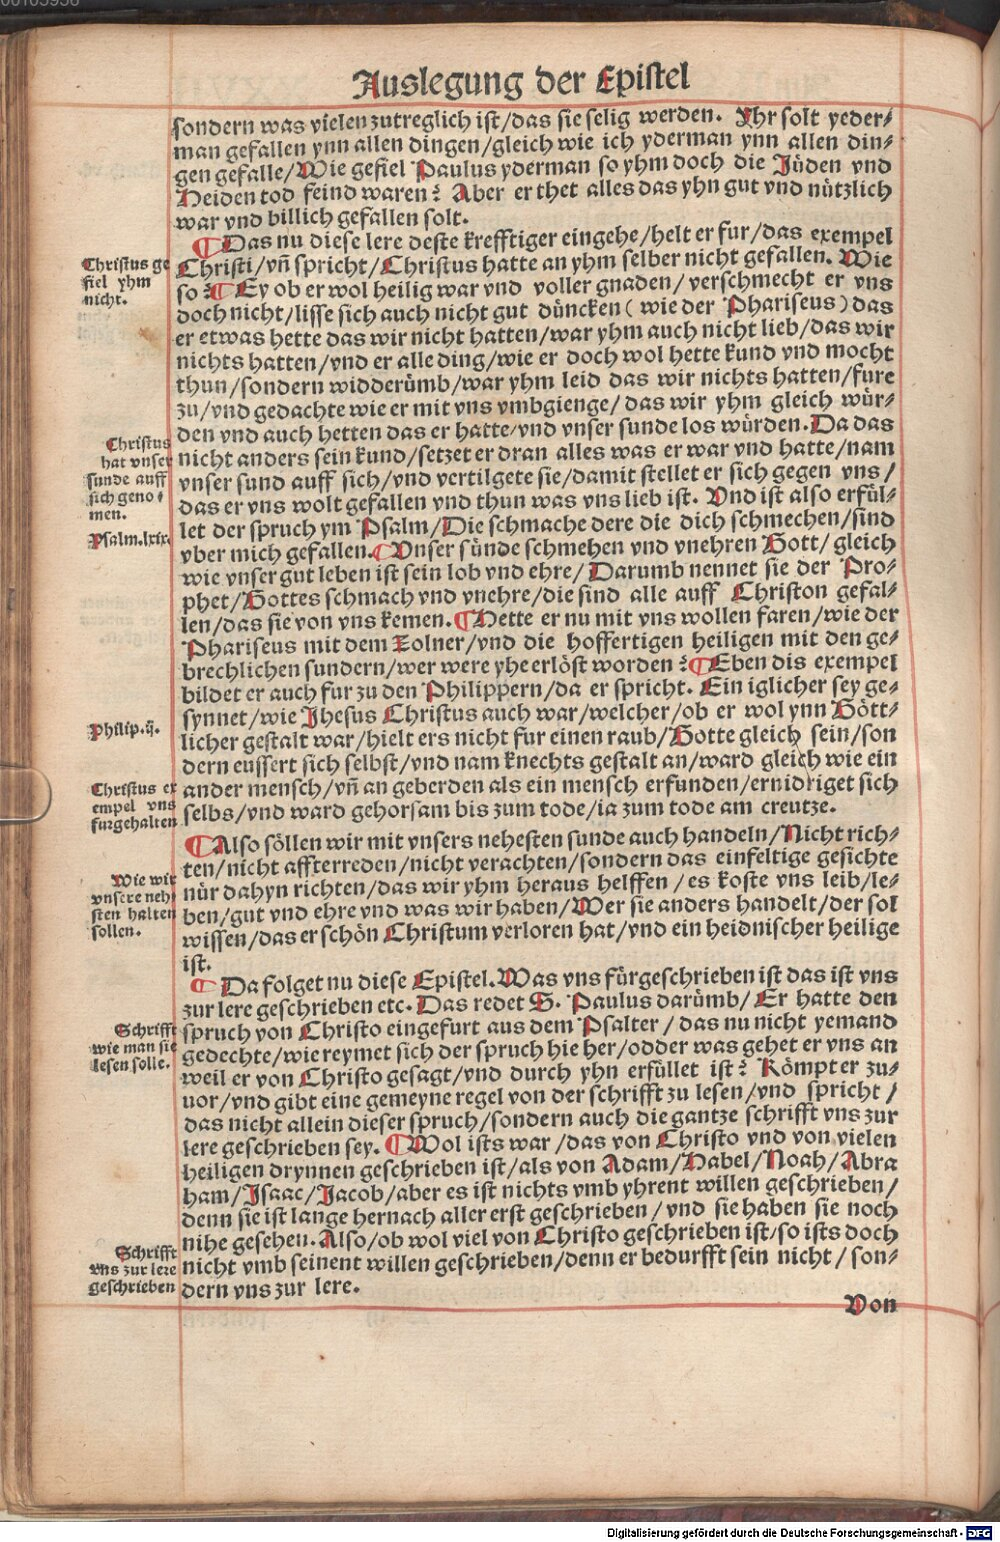 Auslegung der Epistel
sondern was vielen zutreglich ist/das sie selig werden. Yhr solt yeder-
man gefallen ynn allen dingen/gleich wie ich yderman ynn allen din-
gen gefalle/Wie gefiel Paulus yderman so yhm doch die Jüden vnd
Heiden tod feind waren? Aber er thet alles das yhn gut vnd nützlich
war vnd billich gefallen solt.
¶Das nu diese lere deste krefftiger eingehe/helt er fur/das exempel
Christi/vñ spricht/Christus hatte an yhm selber nicht gefallen. Wie
so? ¶Ey ob er wol heilig war vnd voller gnaden/verschmecht er vns
doch nicht/lisse sich auch nicht gut düncken (wie der Phariseus) das
er etwas hette das wir nicht hatten/war yhm auch nicht lieb/das wir
nichts hatten/vnd er alle ding/wie er doch wol hette kund vnd mocht
thun/sondern widderümb/war yhm leid das wir nichts hatten/fure
zu/vnd gedachte wie er mit vns vmbgienge/das wir yhm gleich wür-
den vnd auch hetten das er hatte/vnd vnser sunde los würden. Da das
nicht anders sein kund/setzet er dran alles was er war vnd hatte/nam
vnser sund auff sich/vnd vertilgete sie/damit stellet er sich gegen vns/
das er vns wolt gefallen vnd thun was vns lieb ist. Vnd ist also erfül-
let der spruch ym Psalm/Die schmache dere die dich schmechen/sind
vber mich gefallen. ¶Vnser sünde schmehen vnd vnehren Gott/gleich
wie vnser gut leben ist sein lob vnd ehre/Darumb nennet sie der Pro-
phet/Gottes schmach vnd vnehre/die sind alle auff Christon gefal-
len/das sie von vns kemen. ¶Hette er nu mit vns wollen faren/wie der
Phariseus mit dem Zolner/vnd die hoffertigen heiligen mit den ge-
brechlichen sundern/wer were yhe erlöst worden? ¶Eben dis exempel
bildet er auch fur zu den Philippern/da er spricht. Ein iglicher sey ge-
synnet/wie Jhesus Christus auch war/welcher/ob er wol ynn Gött-
licher gestalt war/hielt ers nicht fur einen raub/Gotte gleich sein/son
dern eussert sich selbst/vnd nam knechts gestalt an/ward gleich wie ein
ander mensch/vñ an geberden als ein mensch erfunden/ernidriget sich
selbs/vnd ward gehorsam bis zum tode/ia zum tode am creutze.
¶Also söllen wir mit vnsers nehesten sunde auch handeln/Nicht rich-
ten/nicht affterreden/nicht verachten/sondern das einfeltige gesichte
nür dahyn richten/das wir yhm heraus helffen/es koste vns leib/le-
ben/gut vnd ehre vnd was wir haben/Wer sie anders handelt/der sol
wissen/das er schön Christum verloren hat/vnd ein heidnischer heilige
ist.
¶Da folget nu diese Epistel. Was vns fürgeschrieben ist das ist vns
zur lere geschrieben etc. Das redet S. Paulus darümb/Er hatte den
spruch von Christo eingefurt aus dem Psalter/das nu nicht yemand
gedechte/wie reymet sich der spruch hie her/odder was gehet er vns an
weil er von Christo gesagt/vnd durch yhn erfüllet ist? Kömpt er zu-
uor/vnd gibt eine gemeyne regel von der schrifft zu lesen/vnd spricht/
das nicht allein dieser spruch/sondern auch die gantze schrifft vns zur
lere geschrieben sey. ¶Wol ists war/das von Christo vnd von vielen
heiligen drynnen geschrieben ist/als von Adam/Habel/Noah/Abra
ham/Isaac/Jacob/aber es ist nichts vmb yhrent willen geschrieben/
denn sie ist lange hernach aller erst geschrieben/vnd sie haben sie noch
nihe gesehen. Also/ob wol viel von Christo geschrieben ist/so ists doch
nicht vmb seinent willen geschrieben/denn er bedurfft sein nicht/son-
dern vns zur lere.
Von
Christus ge
fiel yhm
nicht.
Christus
hat vnser
sunde auff
sich geno-
men.
Psalm.lxix.
Philip.ij.
Christus ex
empel vns
furgehalten
Wie wir
vnsere neh-
sten halten
sollen.
Schrifft
wie man sie
lesen solle.
Schrifft
vns zur lere
geschrieben
Digitalisierung gefördert durch die Deutsche Forschungsgemeinschaft - DFG